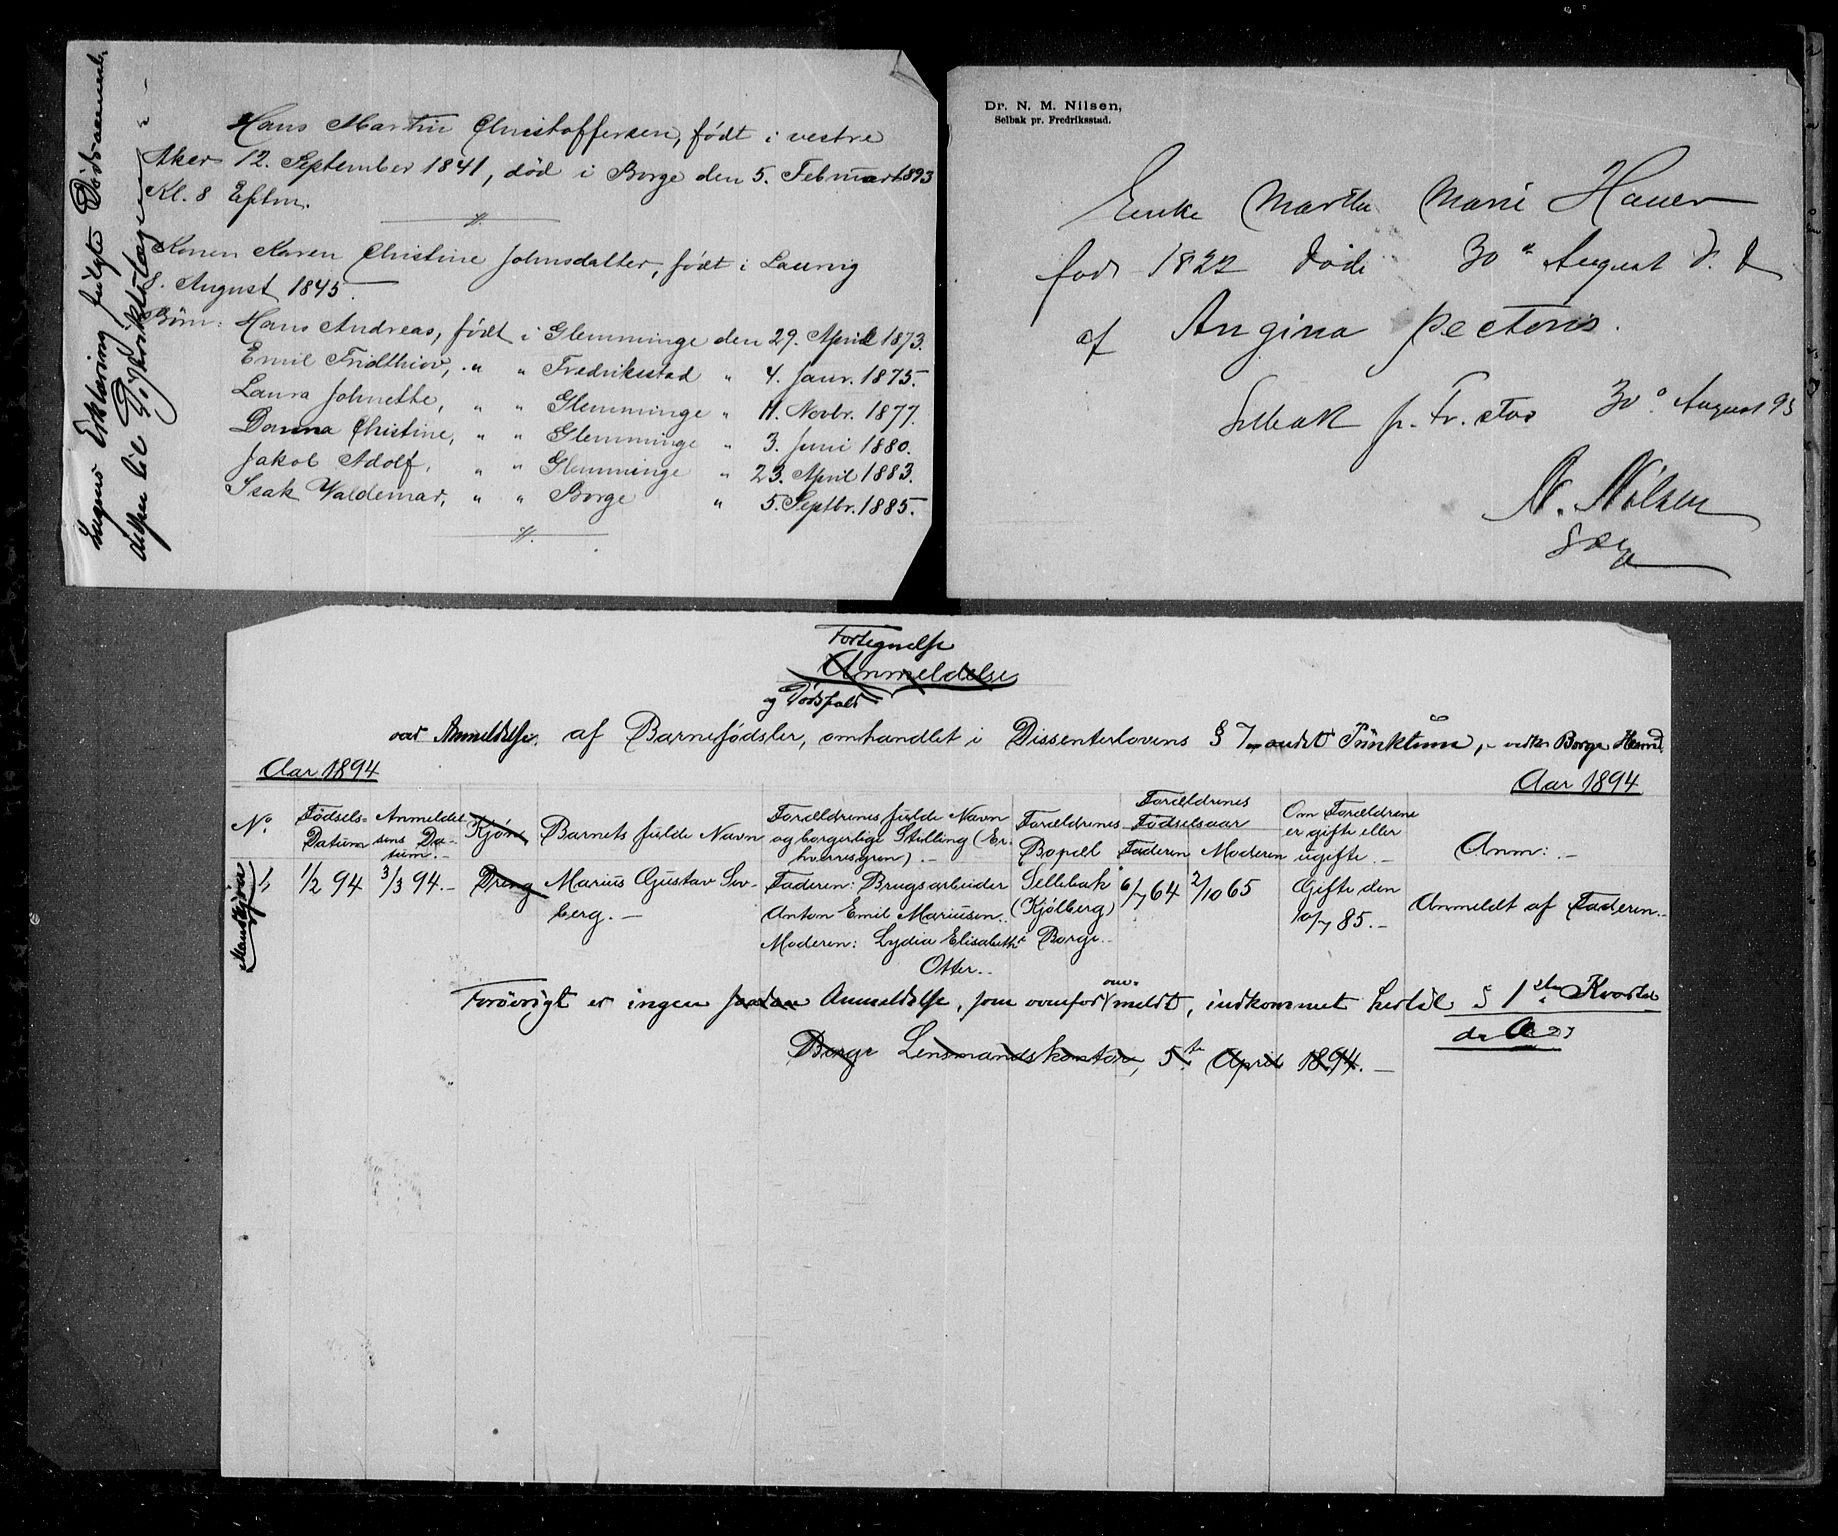 Hans Martin Christoffersen, født i vestre
Aker 12. September 1841, død i Borge den 5. Februar 1893
Kl. 8 Eftm.
Konen Karen Christine Johnsdatter, født i Laurvig
8. August 1845.
Børn: Hans Andreas, født i Glemminge den 29. April 1873.
Emil Fridthiov, " " Fredriksstad " 4. Janr. 1875.
Laura Johnette, " " Glemminge " 11. Novbr. 1877.
Danna Christine, " " Glemminge " 3. Juni 1880.
Jakob Adolf, " " Glemminge " 23. April 1883.
Isak Valdemar, " " Borge " 5. Septbr. 1885.
Lægens Erklæring fulgte Dødsanmeldelsen
Dr. N. M. Nilsen,
Selbak pr. Fredriksstad.
Enke Martha Marie Hauer
født 1822 døde 30 te August d. A
af Angina pectoris.
Selbak pr. Fr.stad 30 August 93
N. Nilsen
Læge
Fortegnelse
Anmeldelse
og Dødsfald
over Anmeldelser af Barnefødsler, omhandlet i Dissenterlovens § 7 andet Punktum, vedk. Borge Herred
Aar 1894 Aar 1894
No. Fødsels- Datum Anmeldelsens Datum.- Kjøn Barnets fulde Navn Forældrenes fulde Navn og borgerlige Stilling (Erhvervsgren).- Forældrenes Bopæl Forældrenes Fødselsaar Faderen Moderen Om Forældrene er gifte eller ugifte.- Anm:.-
Mandkjøn
1, 1/2 94 3/3 94.- Dreng Marius Gustav Sev- Faderen: Brugsarbeider Sellebak 6/7 64 2/10 65 Gifte den Anmeldt af Faderen.-
berg.- Anton Emil Mariusen. (Kjølberg) 10/7 85.-
Moderen: Lydia Elisabeth i Borge.-
Otter.-
Forøvrigt er ingen saadan Anmeldelse, som ovenfor ommeldt, indkommet hertil i 1ste Kvartal
d. A.
Borge Lensmandskontor, 5te April 1894.-